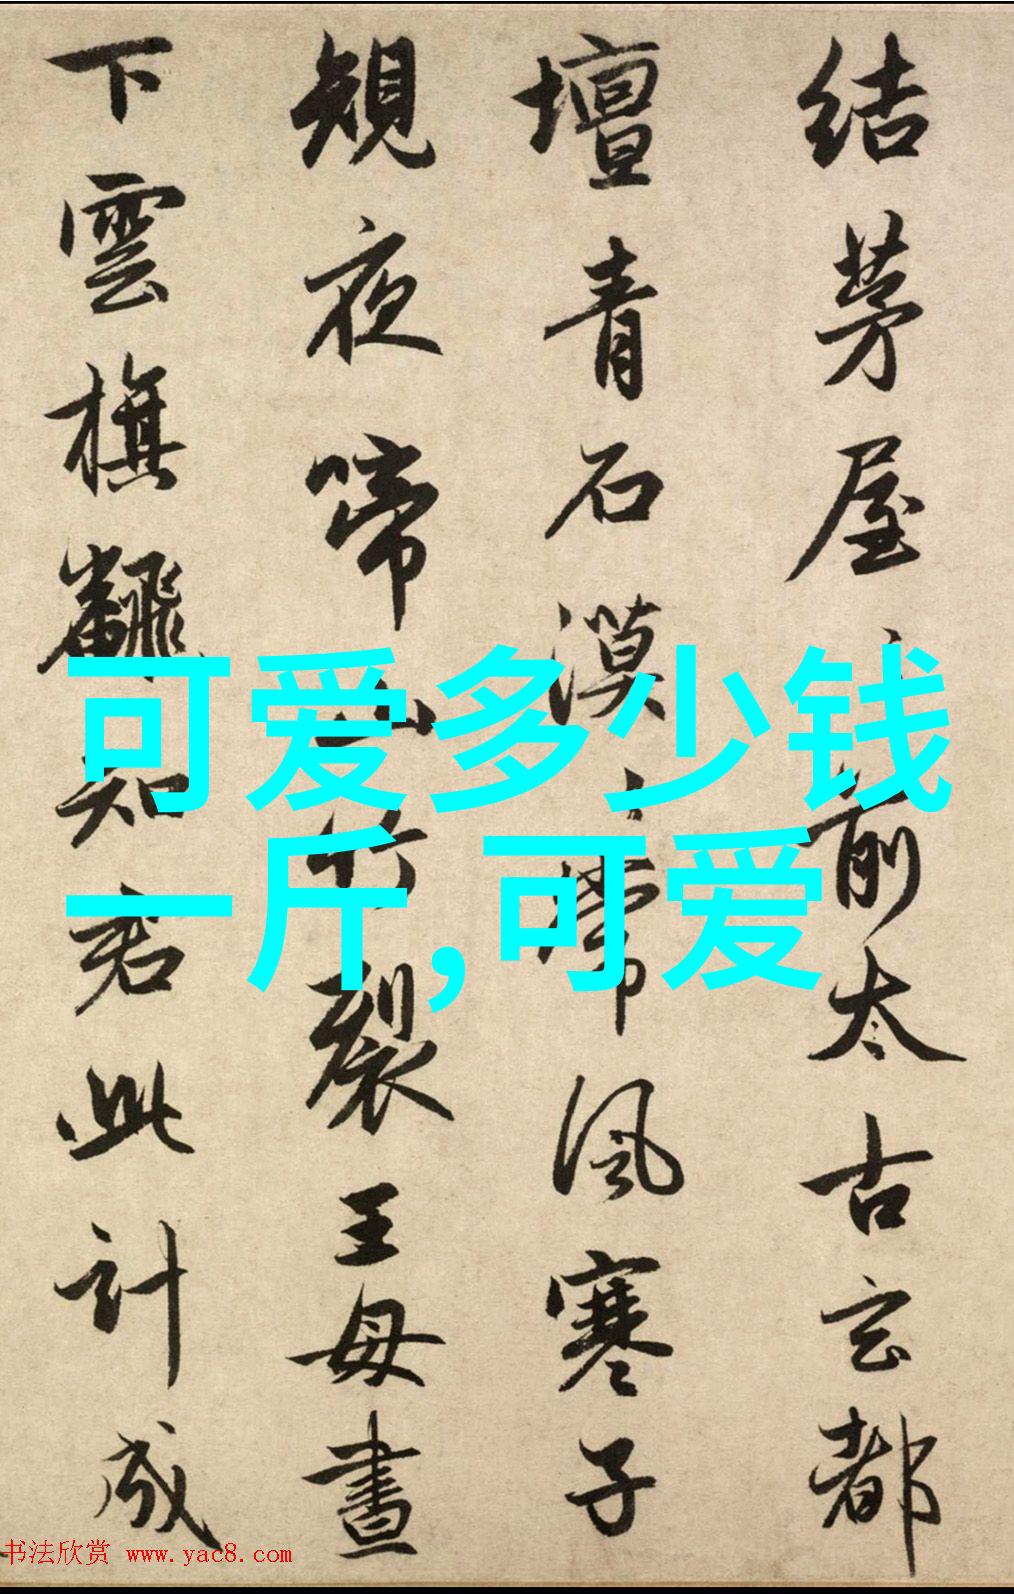 结茅屋前太古玄都
壇青石漠〻常風寒子
規夜啼山竹裂王母晝
下雲旗飜知君此計成
可爱多少钱
一斤,可爱
书法欣赏 www.yac8.com